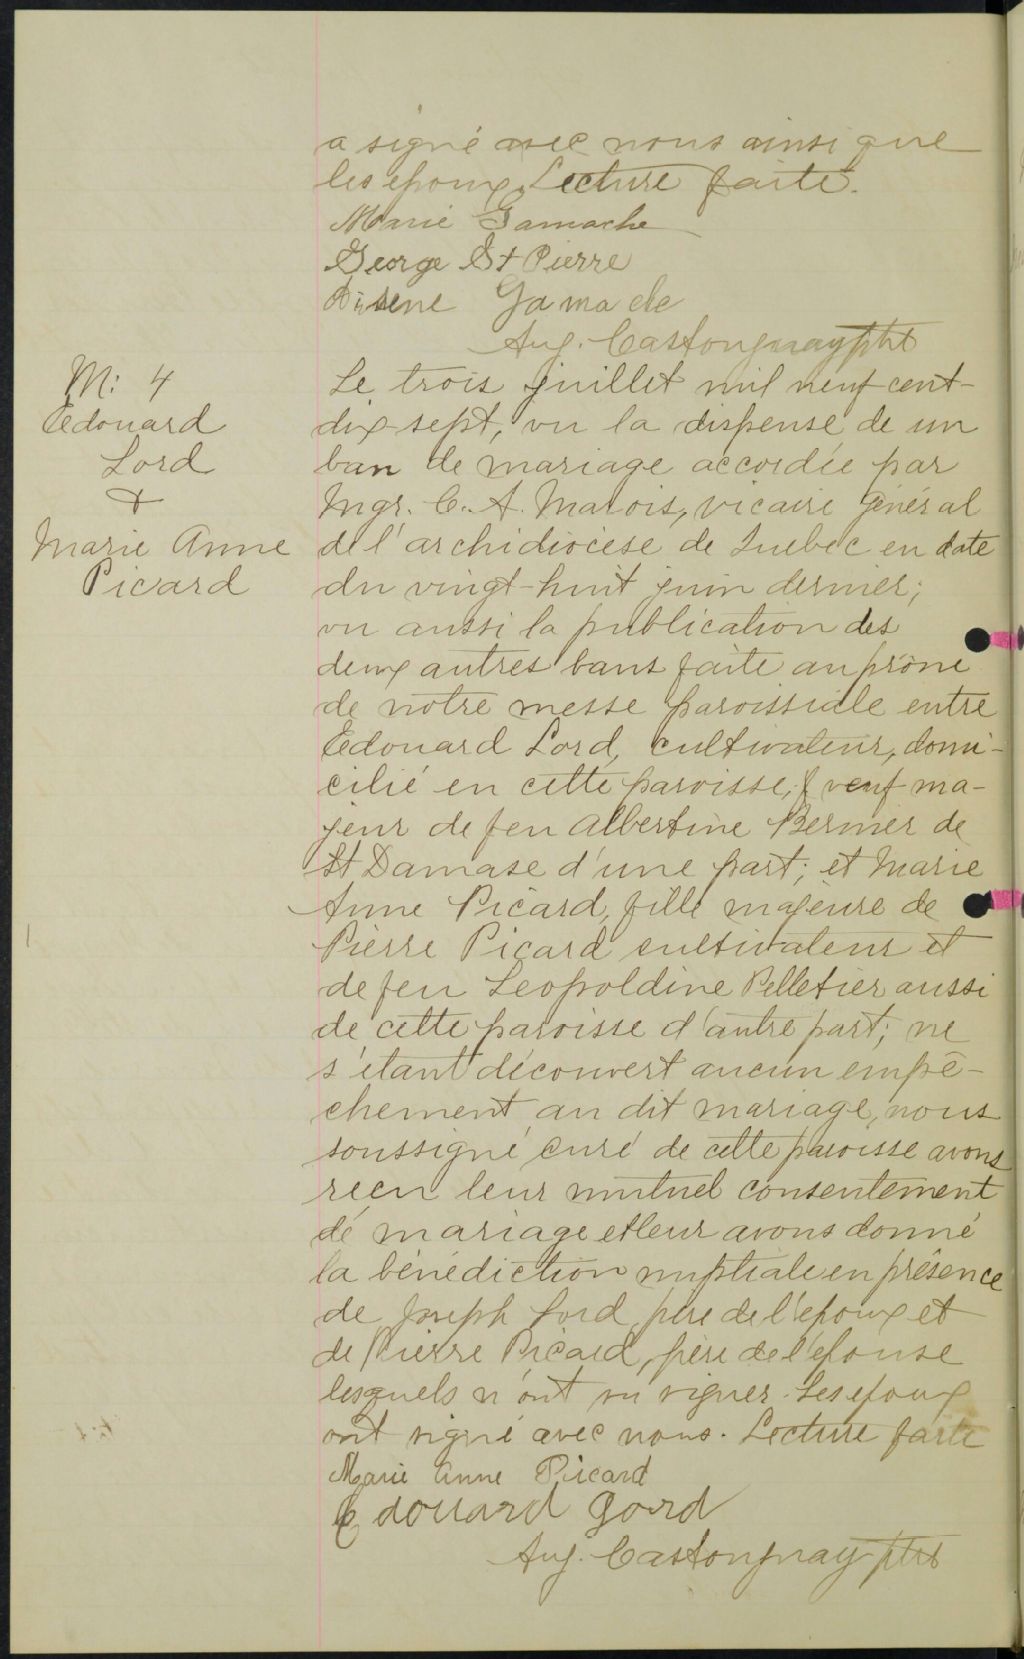 a signé avec nous ainsi que
les epoux. Lecture faite.
Marie Gamache
George St Pierre
Gamache
Aug. Castonguay ptre
M: 4
Edouard
Lord
&
Marie Anne
Picard
Le trois juillet mil neuf cent-
dix-sept, vu la dispense de un
ban de mariage accordée par
Mgr. C. A. Marois, vicaire général
de l'archidiocèse de Quebec en date
du vingt-huit juin dernier;
vu aussi la publication des
deux autres bans faite au prône
de notre messe paroissiale entre
Edouard Lord, cultivateur, domi-
cilié en cette paroisse, veuf ma-
jeur de feu Albertine Bernier de
St Damase d'une part; et Marie
Anne Picard, fille majeure de
Pierre Picard cultivateur et
de feu Leopoldine Pelletier aussi
de cette paroisse d'autre part; ne
s'étant découvert aucun empê-
chement au dit mariage, nous
soussigné, curé de cette paroisse avons
reçu leur mutuel consentement
de mariage et leur avons donné
la bénédiction nuptiale en présence
de Joseph Lord, père de l'epoux et
de Pierre Picard, père de l'epouse
lesquels n'ont su signer. Les epoux
ont signé avec nous. Lecture faite
Marie Anne Picard
Edouard Lord
Aug. Castonguay ptre